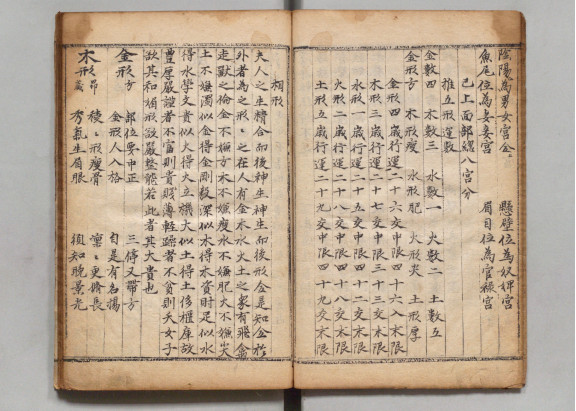 陰陽為男女宮全。 懸壁位為奴婢宮
魚尾位為妻妾宮 眉目位為官祿宮
已上面部總八宮分
推五形運數
金數四 木數三 水數一 火數二 土數五
金形方 木形瘦 水形肥 火形尖 土形厚
金形四歲行運二十六交中限四十六入末限
木形三歲行運二十七交中限三十三交末限
水形一歲行運二十 交中限四十 交末限
火形二歲行運二十 交中限四十八交末限
土形五歲行運二十九交中限四十九交末限
相形
夫人之生精合而後神生神生而後形全是知全於
外者為之形〻之在人有金木水火土之象有飛禽
走獸之倫金不嫌方木不嫌瘦水不嫌肥火不嫌尖
土不嫌濁似金得金剛毅深似木得木資財足似水
得水學文貴似火得火立機大似土得土侈櫃庫故
豐厚嚴謹者不富則貴賤薄輕躁者不貧則夭女子
欲其和媚形欲嚴整能若此者其大貴也
金形方 部位要中正 三停又帶方
金形人入格 自是有名揚
木形昂藏 稜〻形瘦骨 凜〻更脩長
秀氣生眉眼 須知晚景光